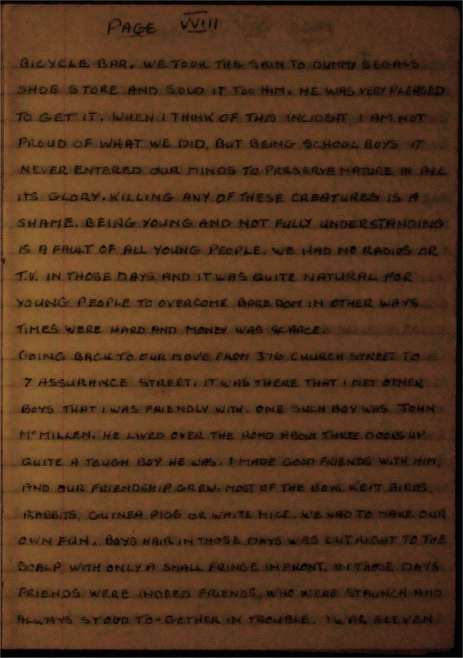 PAGE VVIII
BICYCLE BAR. WE TOOK THE SKIN TO DUMMY SEGALS
SHOE STORE AND SOLD IT TOO HIM. HE WAS VERY PLEASED
TO GET IT. WHEN I THINK OF THIS INCIDENT I AM NOT
PROUD OF WHAT WE DID, BUT BEING SCHOOL BOYS IT
NEVER ENTERED OUR MINDS TO PRESERVE NATURE IN ALL
ITS GLORY. KILLING ANY OF THESE CREATURES IS A
SHAME. BEING YOUNG AND NOT FULLY UNDERSTANDING
IS A FAULT OF ALL YOUNG PEOPLE. WE HAD NO RADIOS OR
T.V. IN THOSE DAYS AND IT WAS QUITE NATURAL FOR
YOUNG PEOPLE TO OVERCOME BORE DOM IN OTHER WAYS
TIMES WERE HARD AND MONEY WAS SCARCE.
GOING BACK TO OUR MOVE FROM 376 CHURCH STREET TO
7 ASSURANCE STREET. IT WAS THERE THAT I MET OTHER
BOYS THAT I WAS FRIENDLY WITH. ONE SUCH BOY WAS JOHN
McMILLEN. HE LIVED OVER THE ROAD ABOUT THREE DOORS UP
QUITE A TOUGH BOY HE WAS. I MADE GOOD FRIENDS WITH HIM,
AND OUR FRIENDSHIP GREW. MOST OF THE BOYS KEPT BIRDS,
RABBITS, GUINEA PIGS OR WHITE MICE. WE HAD TO MAKE OUR
OWN FUN. BOYS HAIR IN THOSE DAYS WAS CUT RIGHT TO THE
SCALP WITH ONLY A SMALL FRINGE IN FRONT. IN THOSE DAYS
FRIENDS WERE INDEED FRIENDS, WHO WERE STAUNCH AND
ALWAYS STOOD TO-GETHER IN TROUBLE. I WAS ELEVEN